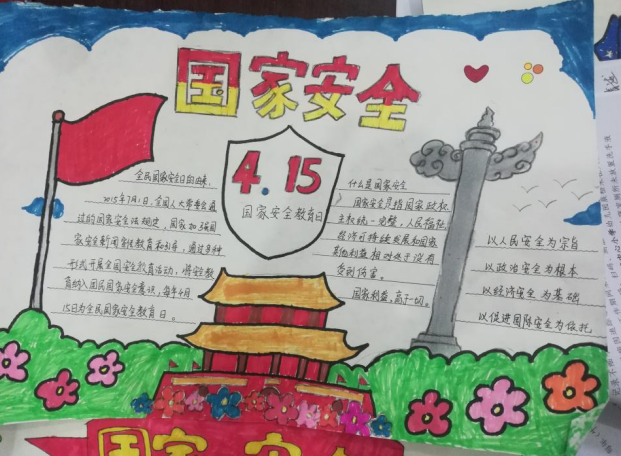 国家安全
4.15
国家安全教育日
全民国家安全日的由来:
2015年7月1日,全国人大常委会通
过的国家安全法规定,国家加强国
家安全新闻宣传教育和引导,通过多种
形式开展国安全教育活动,将安教
育纳入国民国家安意识,每年4月
15日为全民国家安全教育日。
什么是国家安全
国家安全是指国家政权
主权统一完整,人民福祉,
经济可持续发展和国家
其他利益相对处于没有
受到危害。
国家利益,高于一切。
以人民安全为宗旨
以政治安全为根本
以经济安全为基础
以促进国际安全为依托
国家安全